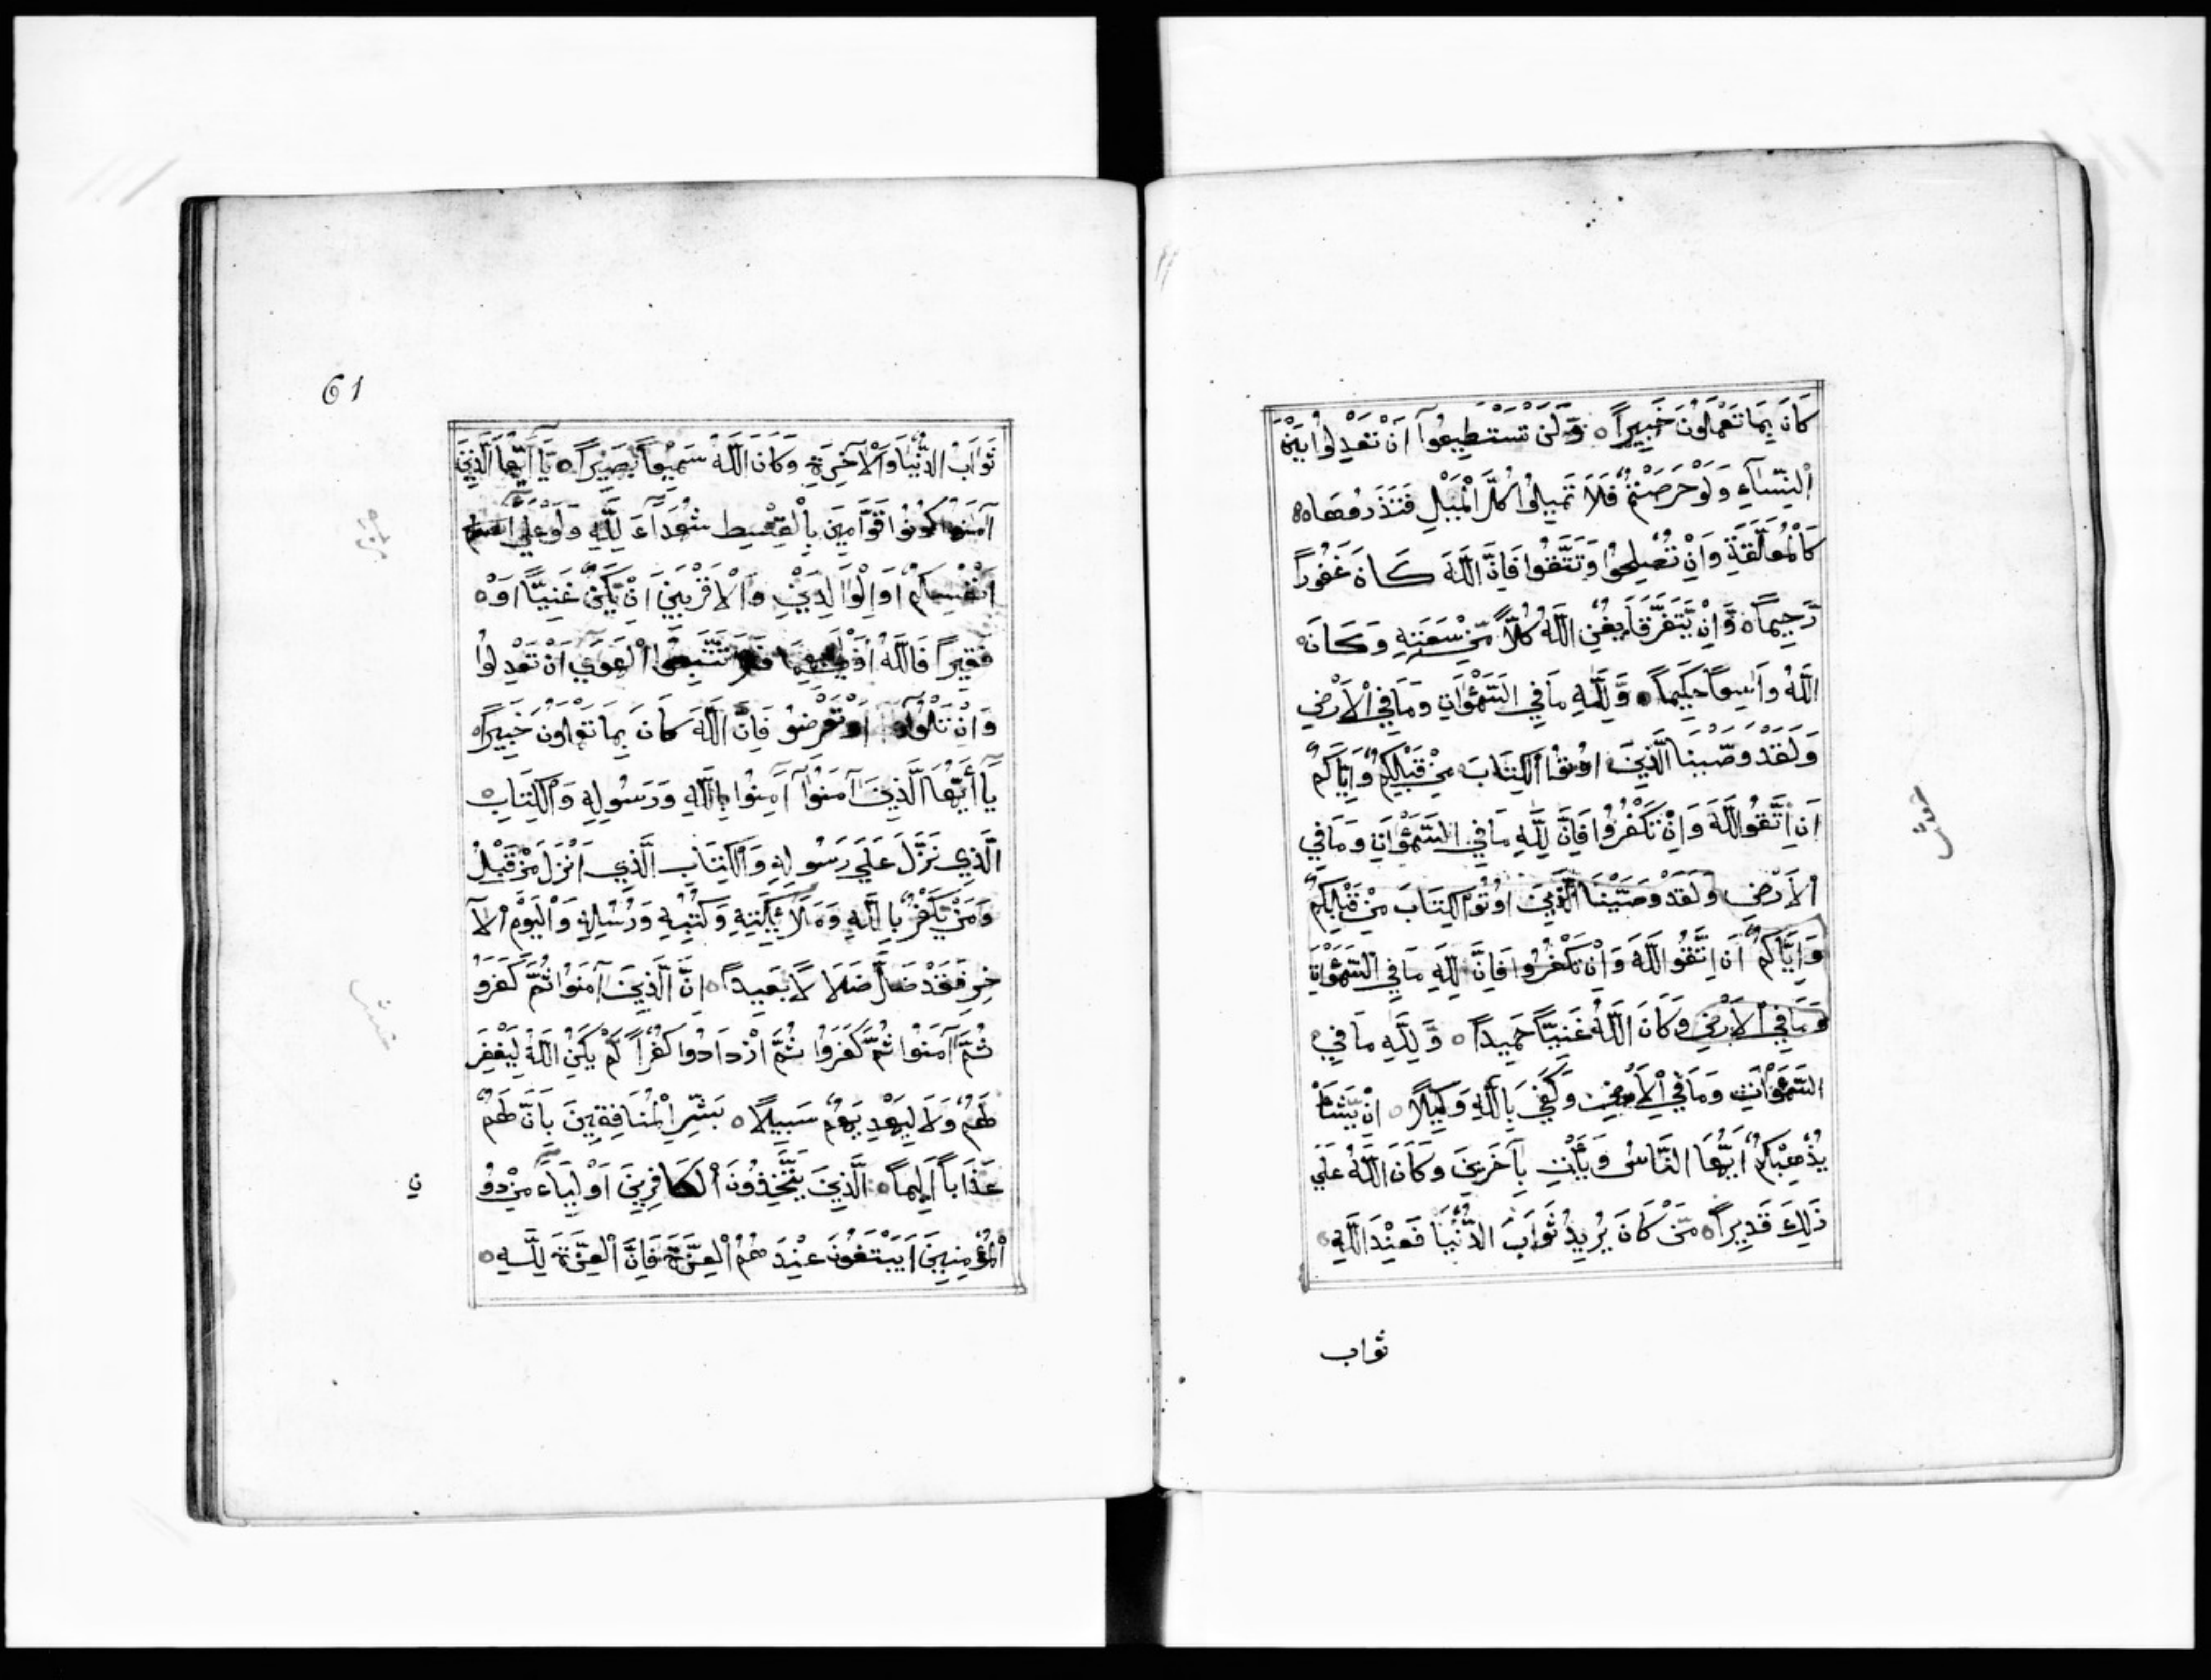 كَانَ بِمَا تَعْمَلُونَ خَبِيراً ٥ وَلَنْ تَسْتَطِيعُوآ اَنْ تَعْدِلُوا بَيْنَ
اْلنِّسَآءِ وَلَوْ حَرَصْتُمْ فَلاَ تَمِيلُوا كُلَّ اْلْمَيْلِ فَتَذَرُوهَا
كَالْمُعَلَّقَةِ وَاِنْ تُصْلِحُوا وَتَتَّقُوا فَاِنَّ اللَّهَ كَانَ غَفُوراً
رَّحِيماً ٥ وَّاِنْ يَّتَفَرَّقَا يُغْنِ اللَّهُ كُلاًّ مِّنْ سَعَتِهِ وَكَانَ
اللَّهُ وَاسِعاً حَكِيماً ٥ وَّلِلَّهِ مَا فِي السَّمٰوَاتِ وَمَا فِي اْلاَرْضِ
وَلَقَدْ وَصَّيْنَا الَّذِينَ اوُتُوا اْلكِتَابَ مِنْ قَبْلِكُمْ وَاِيَّاكُمْ
اَنِ اتَّقُو اللَّهَ وَاِنْ تَكْفُرُوا فَاِنَّ لِلَّهِ مَا فِي السَّمٰوَاتِ وَمَا فِي
اْلاَرْضِ وَلَقَدْ وَصَّيْنَا الَّذِينَ اوُتُو اْلكِتَابَ مِنْ قَبْلِكُمْ
وَاِيَّاكُمْ اَنِ اتَّقُو اللَّهَ وَاِنْ تَكْفُرُوا فَاِنَّ لِلَّهِ مَا فِي السَّمٰوَاتِ
وَمَا فِي اْلاَرْضِ وَكَانَ اللَّهُ غَنِيّاً حَمِيداً ٥ وَّلِلَّهِ مَا فِي
السَّمٰوَاتِ وَمَا فِي اْلاَرْضِ وَكَفَي بِاللَّهِ وَكِيلاً ٥ اِنْ يَّشَاْ
يُذْهِبْكُمْ اَيُّهَا النَّاسُ وَيَأْتِ بِآخَرِينَ وَكَانَ اللَّهُ عَلَي
ذَلِكَ قَدِيراً ٥ مَّنْ كَانَ يُرِيدُ ثَوَابَ الدُّنْيَا فَعِنْدَ اللَّهِ
ثواب
61
ثَوَابُ الدُّنْيَا وَاْلآخِرَةِ وَكَانَ اللَّهُ سَمِيْعاً بَصِيْراً ٥ يَآ اَيُّهَا الَّذِينَ
آمَنُوا كُونُوا قَوَّامِينَ بِاْلقِسْطِ شُهَدَآءَ لِلَّهِ وَلَوْ عَلَي
اَنْفُسِكُمْ اَوِ اْلوَالِدَيْنِ وَاْلاَقْرَبِينَ اِنْ يَّكُنْ غَنِيّاً اَوْ
فَقِيراً فَاللَّهُ اَوْلَي بِهِمَا فَلاَ تَتَّبِعُوا اْلهَوَي اَنْ تَعْدِلُوا
وَاِنْ تَلْوُوآ اَوْ تُعْرِضُو فَاِنَّ اللَّهَ كَانَ بِمَا تَعْمَلُونَ خَبِيراً
يَآ أَيُّهَا الَّذِينَ آمَنُوآ آمِنُوا بِاللَّهِ وَرَسُولِهِ وَاْلكِتَابِ
الَّذِي نَزَّلَ عَلَي رَسُولِهِ وَاْلكِتَابِ الَّذِي اَنْزَلَ مِنْ قَبْلُ
وَمَنْ يَّكْفُرْ بِاللَّهِ وَمَلآئِكَتِهِ وَكُتُبِهِ وَرُسُلِهِ وَاْليَوْمِ اْلآ
خِرِ فَقَدْ ضَلَّ ضَلاَلاً بَعِيداً ٥ اِنَّ الَّذِينَ آمَنُوا ثُمَّ كَفَرُو
ثُمَّ آمَنُوا ثُمَّ كَفَرُوا ثُمَّ ازْدَادُوا كُفْراً لَّمْ يَكُنِ اللَّهُ لِيَغْفِرَ
لَهُمْ وَلاَ لِيَهْدِيَهُمْ سَبِيلاً ٥ بَشِّرِ اْلمُنَافِقِينَ بِاَنَّ لَهُمْ
عَذَاباً اَلِيماً ٥ الَّذِينَ يَتَّخِذُونَ اْلكَافِرِينَ اَوْلِيَآءَ مِنْ دُو
ن
اْلمُؤْمِنِينَ اَيَبْتَغُونَ عِنْدَهُمُ اْلعِزَّةَ فَاِنَّ اْلعِزَّةَ لِلَّهِ